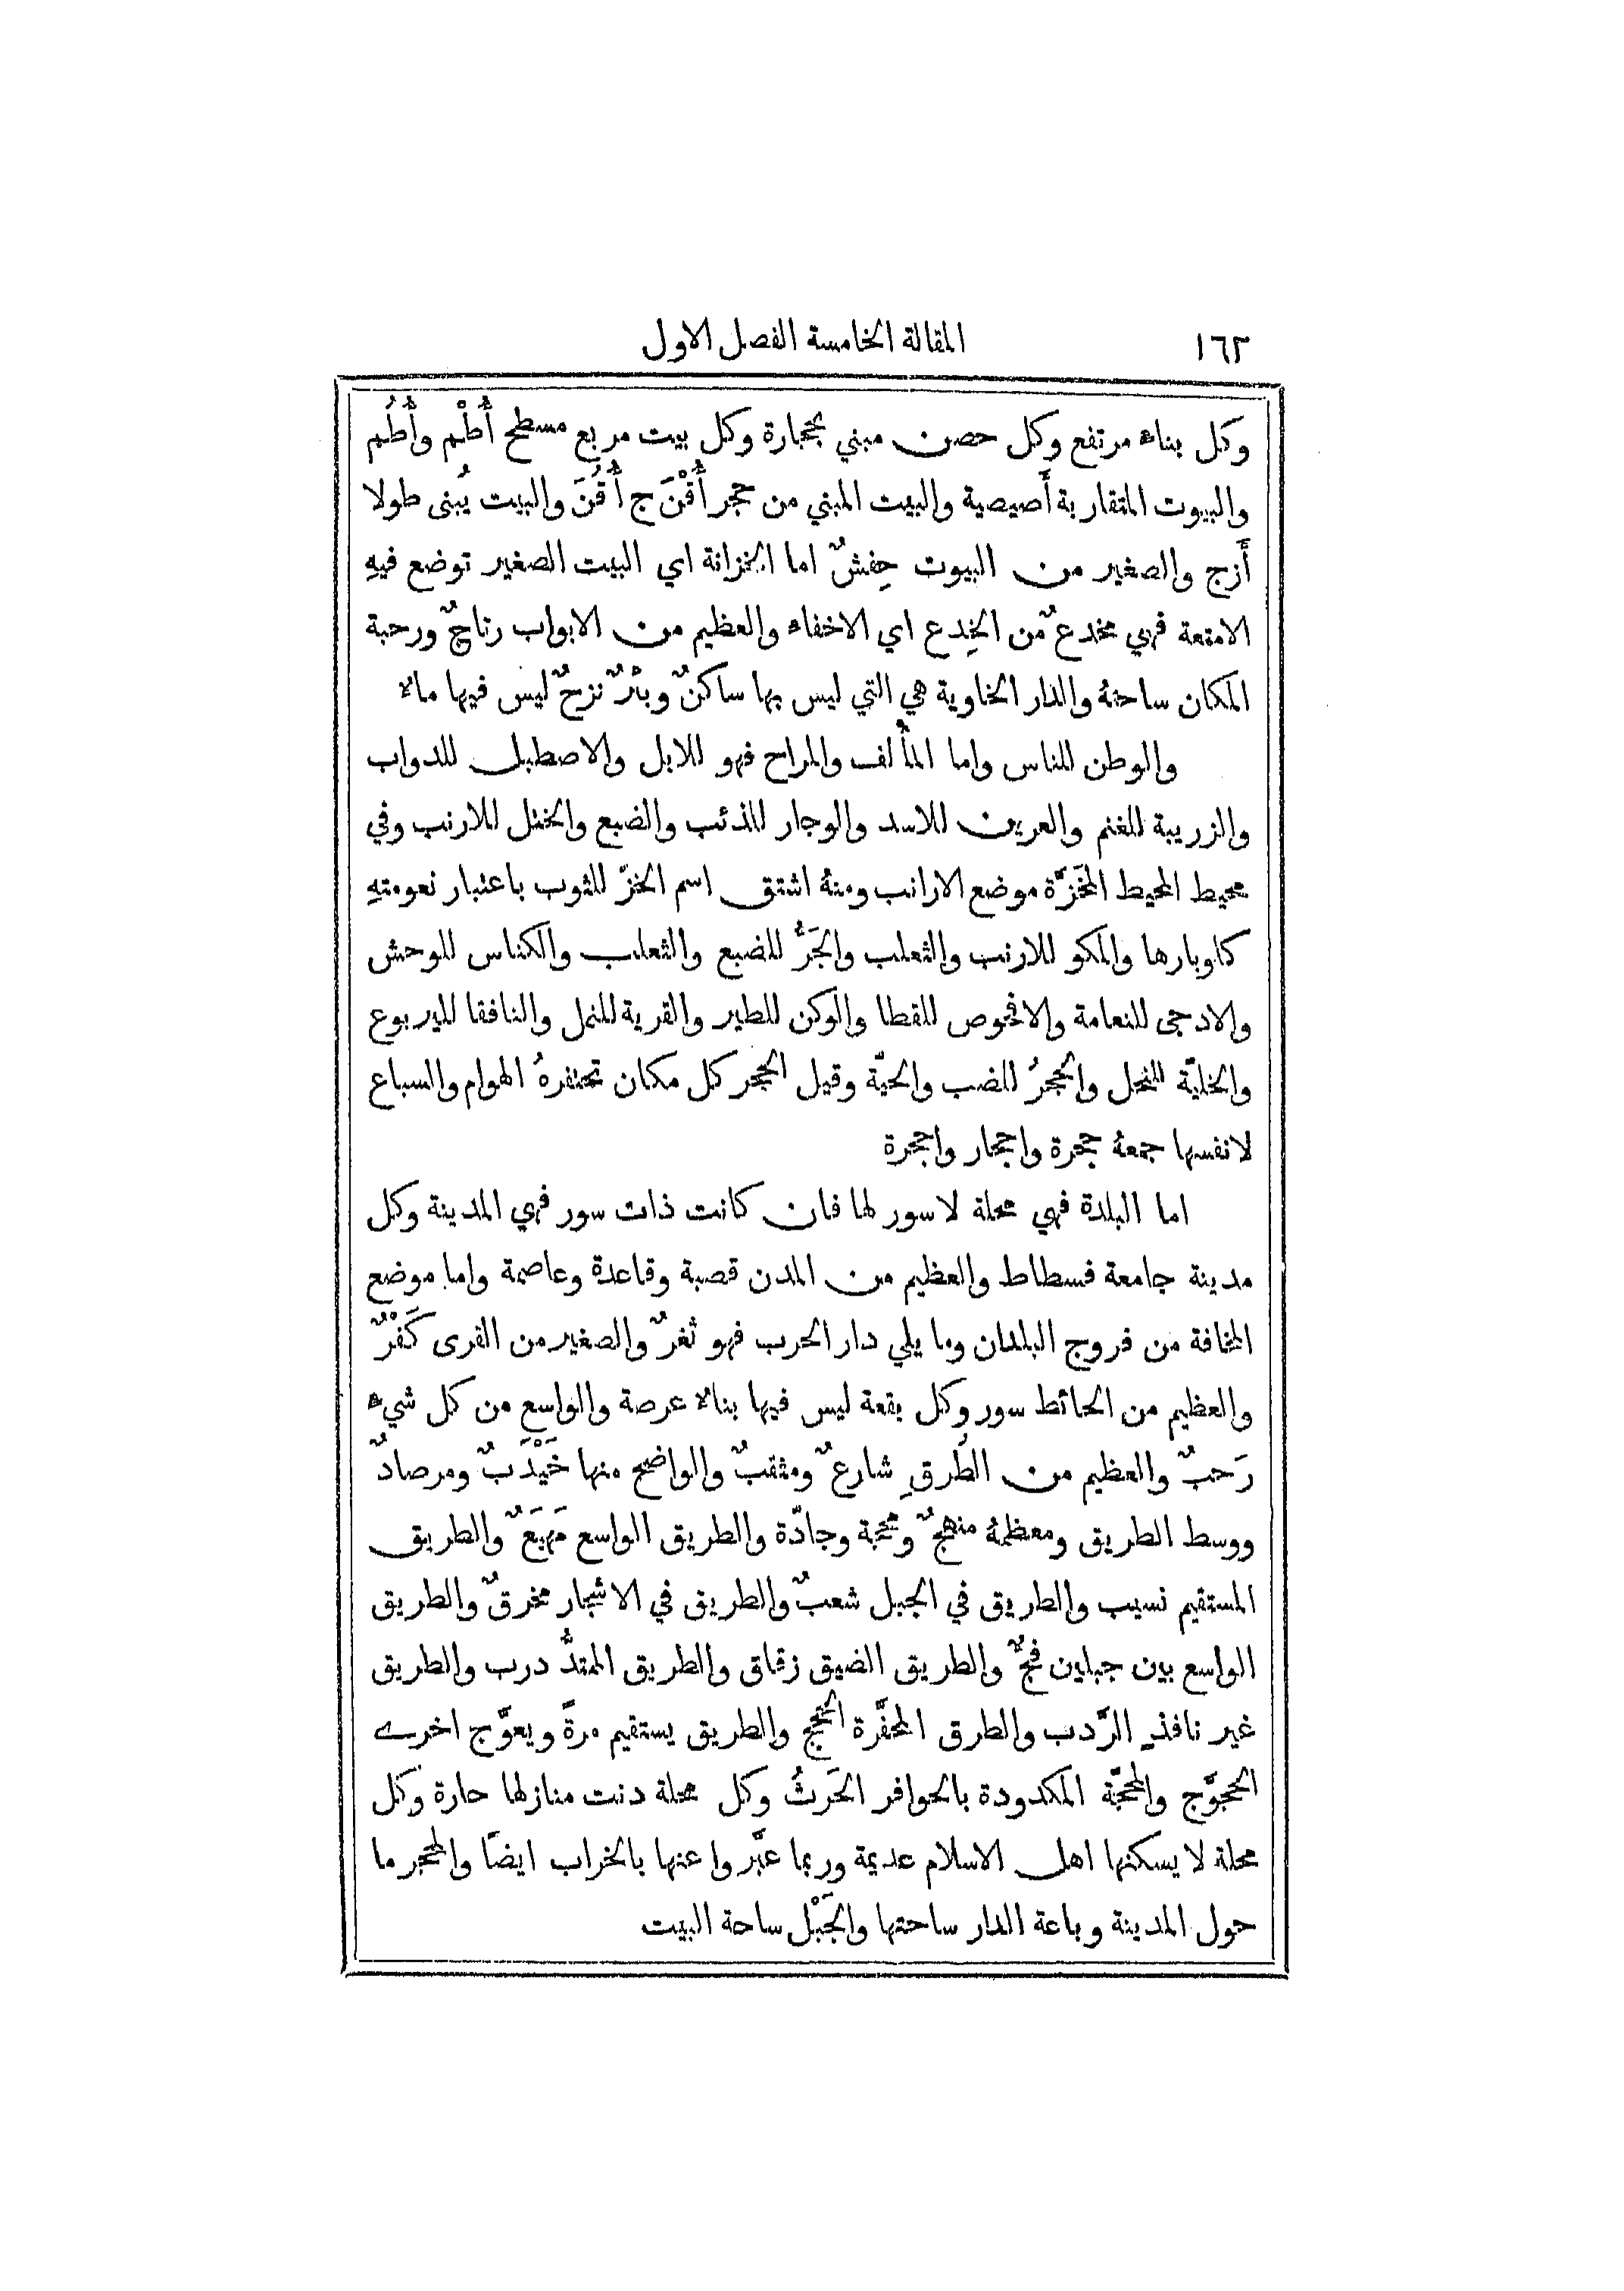 ١٦٢
المقالة الخامسة الفصل الاول
وكل بناء مرتفع وكل حصن مبني بحجارة وكل بيت مربع مسطح أُطْم وأُطُم
والبيوت المتقاربة أَصيصية والبيت المبني من حجر أُقْنَ ج أُقُنَ والبيت يُبنى طولا
أَزج والصغير من البيوت حِفشٌ اما الخزانة اي البيت الصغير توضع فيهِ
الامتعة فهي مخدعٌ من الخِدع اي الاخفاء والعظيم من الابواب رتاجٌ ورحبة
المكان ساحتهُ والدار الخاوية هي التي ليس بها ساكنٌ وبئرٌ نزحٌ ليس فيها ماء
والوطن للناس واما المأْلف والمراح فهو للابل والاصطبل للدواب
والزريبة للغنم والعرين للاسد والوجار للذئب والضبع والختل للارنب وفي
محيط المحيط المَخَزَّة موضع الارانب ومنهُ اشتق اسم الخزّ للثوب باعتبار نعومتهِ
كاوبارها والمكو للارنب والثعلب والجَرُّ للضبع والثعلب والكناس للوحش
والادحى للنعامة والافحوص للقطا والوكن للطير والقرية للنمل والنافقا لليربوع
والخليّة للنحل والجحرُ للضب والحيّة وقيل الجحر كل مكان تحتفرهُ الهوام والسباع
لانفسها جمعهُ جحرة واجحار واجحرة
اما البلدة فهي محلة لا سور لها فان كانت ذات سور فهي المدينة وكل
مدينة جامعة فسطاط والعظيم من المدن قصبة وقاعدة وعاصمة واما موضع
المخافة من فروج البلدان وما يلي دار الحرب فهو ثغرٌ والصغير من القرى كَفْرٌ
والعظيم من الحائط سور وكل بقعة ليس فيها بناء عرصة والواسع من كل شيء
رَحبٌ والعظيم من الطُرقِ شارعٌ ومثقبٌ والواضح منها خَيْدَبٌ ومرصادٌ
ووسط الطريق ومعظمهُ منهجٌ ومحجة وجادّة والطريق الواسع مَهيَعٌ والطريق
المستقيم نسيب والطريق في الجبل شعبٌ والطريق في الاشجار مخرقٌ والطريق
الواسع بين جبلين فجٌّ والطريق الضيق زقاق والطريق الممتدُّ درب والطريق
غير نافذٍ الرَّدب والطرق المحفَّرة الحجج والطريق يستقيم مرةً ويعوَّج اخرے
الحجوَّج والمحجّة المكدودة بالحوافر الحَرثُ وكل محلة دنت منازلها حارة وكل
محلة لا يسكنها اهل الاسلام عديمة وربما عبَّروا عنها بالخراب ايضًا والمحجر ما
حول المدينة وباعة الدار ساحتها والجَبْل ساحة البيت